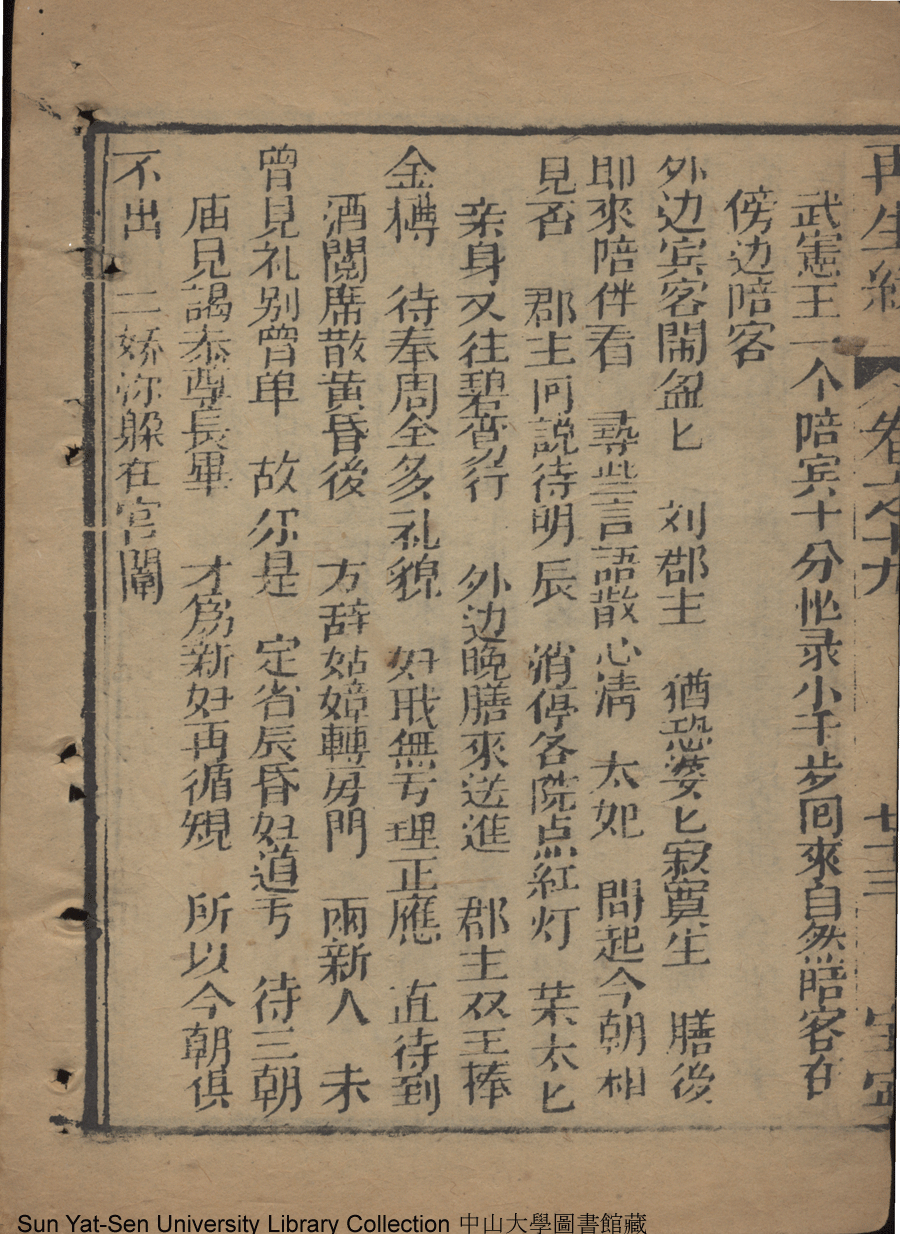 再生緣 卷之十九 廿十三
武憲王一个陪宾十分忙录小千步囘來自然陪客在
傍边陪客
外边宾客閙盈匕 刘郡主 猶恐婆匕寂寞生 膳後
即來陪伴看 尋些言語散心清 太妃 問起今朝相
見否 郡主囘說待明辰 消停各院点紅灯 葉太匕
亲身又往碧鸾行 外边晚膳來送進 郡主双王捧
金樽 待奉周全多礼貌 妇戝無亏理正應 直待到
酒闌席散黄昏後 方辞姑嫜轉房門 兩新人 未
曾見礼别曾单 故尓是 定省辰昏妇道亏 待三朝
庙見謁叅尊長畢 才為新妇再循規 所以今朝俱
不出 二娇弥躲在宫闈
Sun Yat-Sen University Library Collection 中山大學圖書館藏